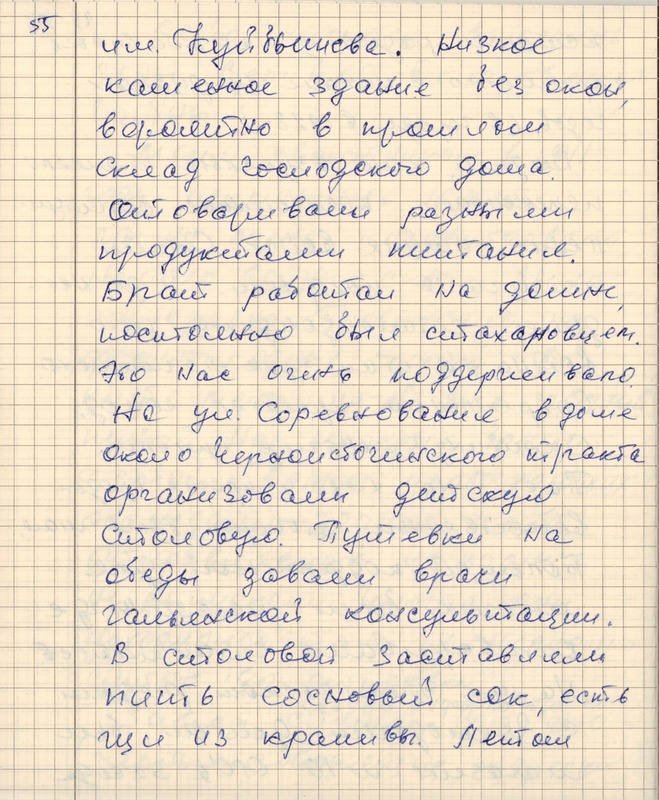 55
им. Куйбышева. Низкое
каменное здание без окон,
вероятно в прошлом
склад господского дома.
Отоваривали разными
продуктами питания.
Брат работал на домне,
постоянно был стахановцем.
Это нас очень поддерживало.
На ул. Соревнования в доме
около Черноисточинского тракта
организовали детскую
столовую. Путевки на
обеды давали врачи
гальянской консультации.
В столовой заставляли
пить сосновый сок, есть
щи из крапивы. Летом